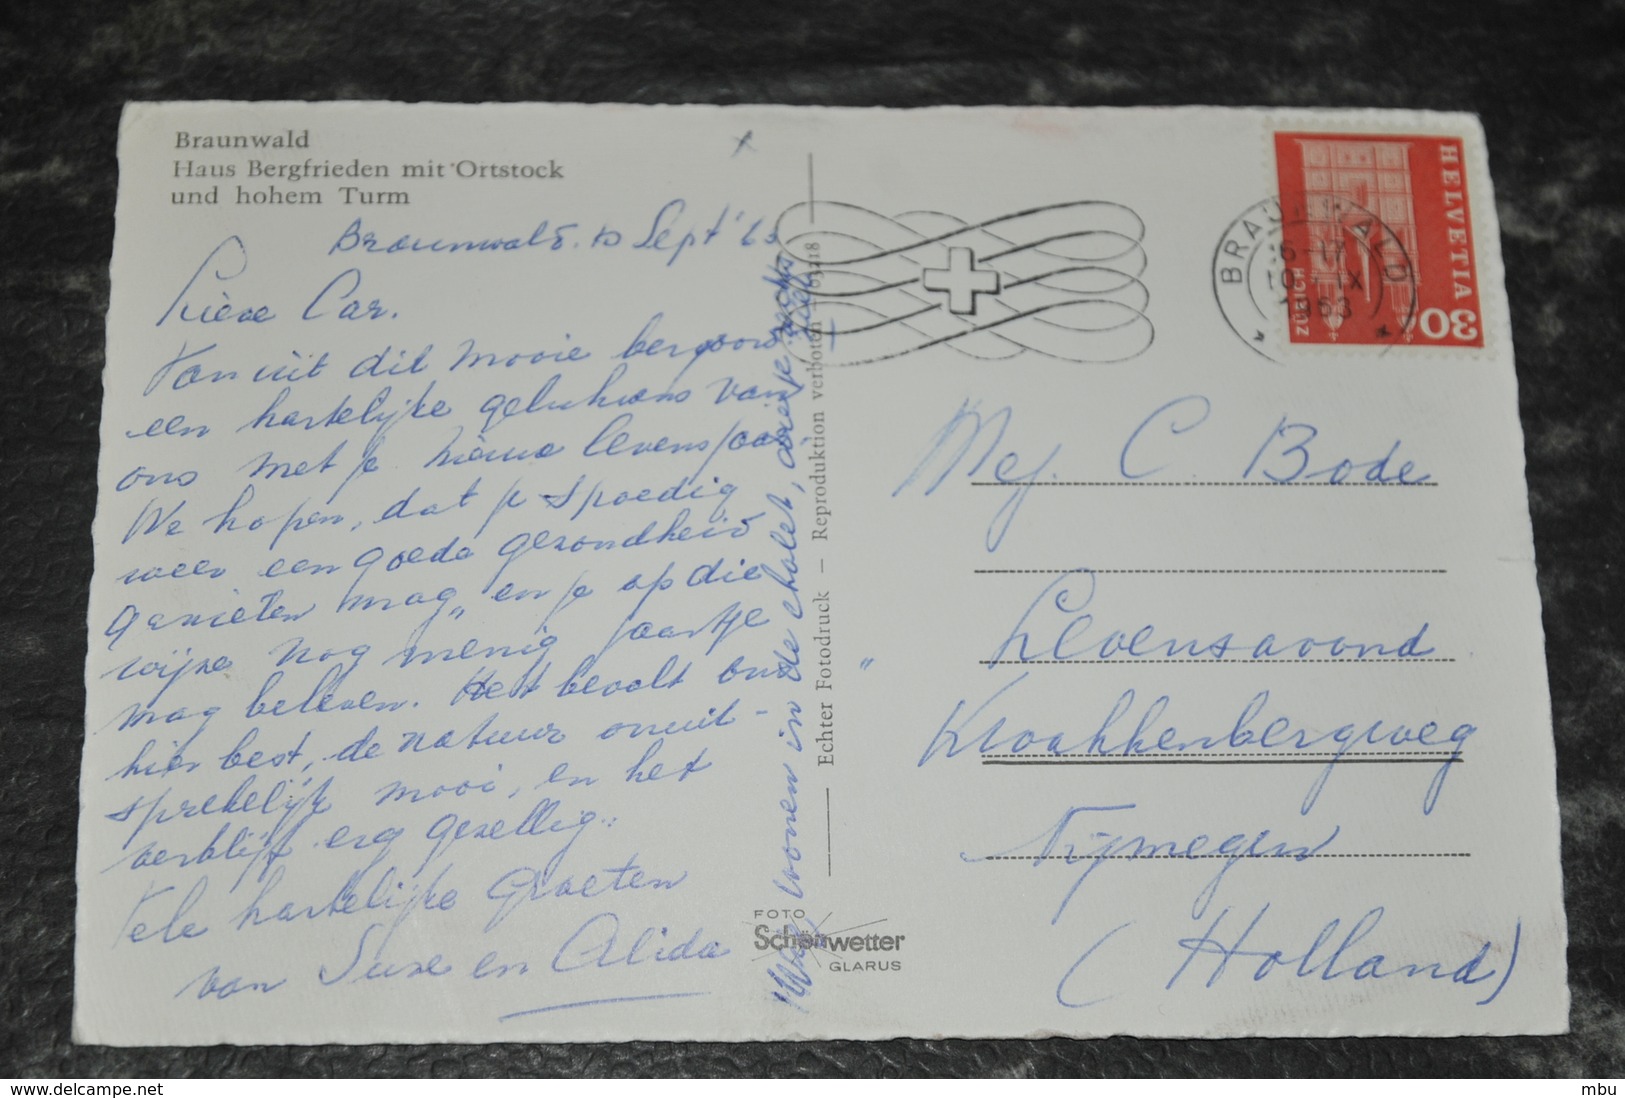 Braunwald
Haus Bergfrieden mit Ortstock
und hohem Turm
Braunwald. 10 Sept '63
Lieve Car.
Vanuit dit mooie bergoord
een hartelijke gelukwens van
ons met je nieuwe levensjaar
We hopen, dat je spoedig
weer een goede gezondheid
genieten mag, en je op die
wijze nog menig jaartje
mag beleven. Het bevalt ons
hier best, de natuur onuit-
sprekelijk mooi, en het
verblijf erg gezellig..
Vele hartelijke groeten
van Suze en Alida
We wonen in de chalet, die je rechts
ziet
Echter Fotodruck – Reproduktion verboten
FOTO
Schönwetter
GLARUS
BRAUNWALD
10. IX
1963
HELVETIA
ZÜRICH
30
Mej. C. Bode
" Levensavond
Kwakkenbergweg
Nijmegen
(Holland)
delcampe.net
mbu